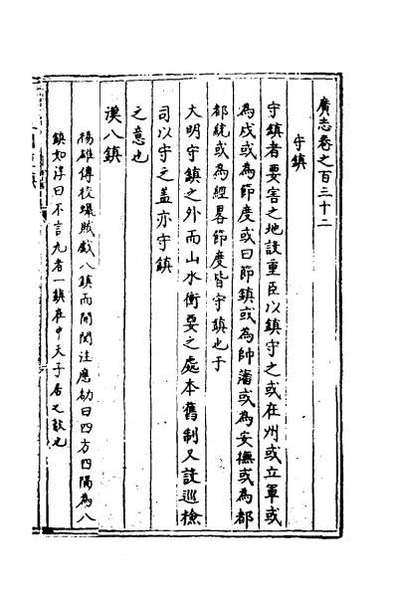 廣志卷之百三十二
守鎮
守鎮者要害之地設重臣以鎮守之或在州或立軍或
為戍或為節度或曰節鎮或為帥藩或為安撫或為都
都統或為經畧節度皆守鎮也于
大明守鎮之外而山水衝要之處本舊制又設巡檢
司以守之盖亦守鎮
之意也
漢八鎮
楊雄傳校獵賦戲八鎮而開關注應劭曰四方四隅為八
鎮如淳曰不言九者一鎮在中天子居之故也